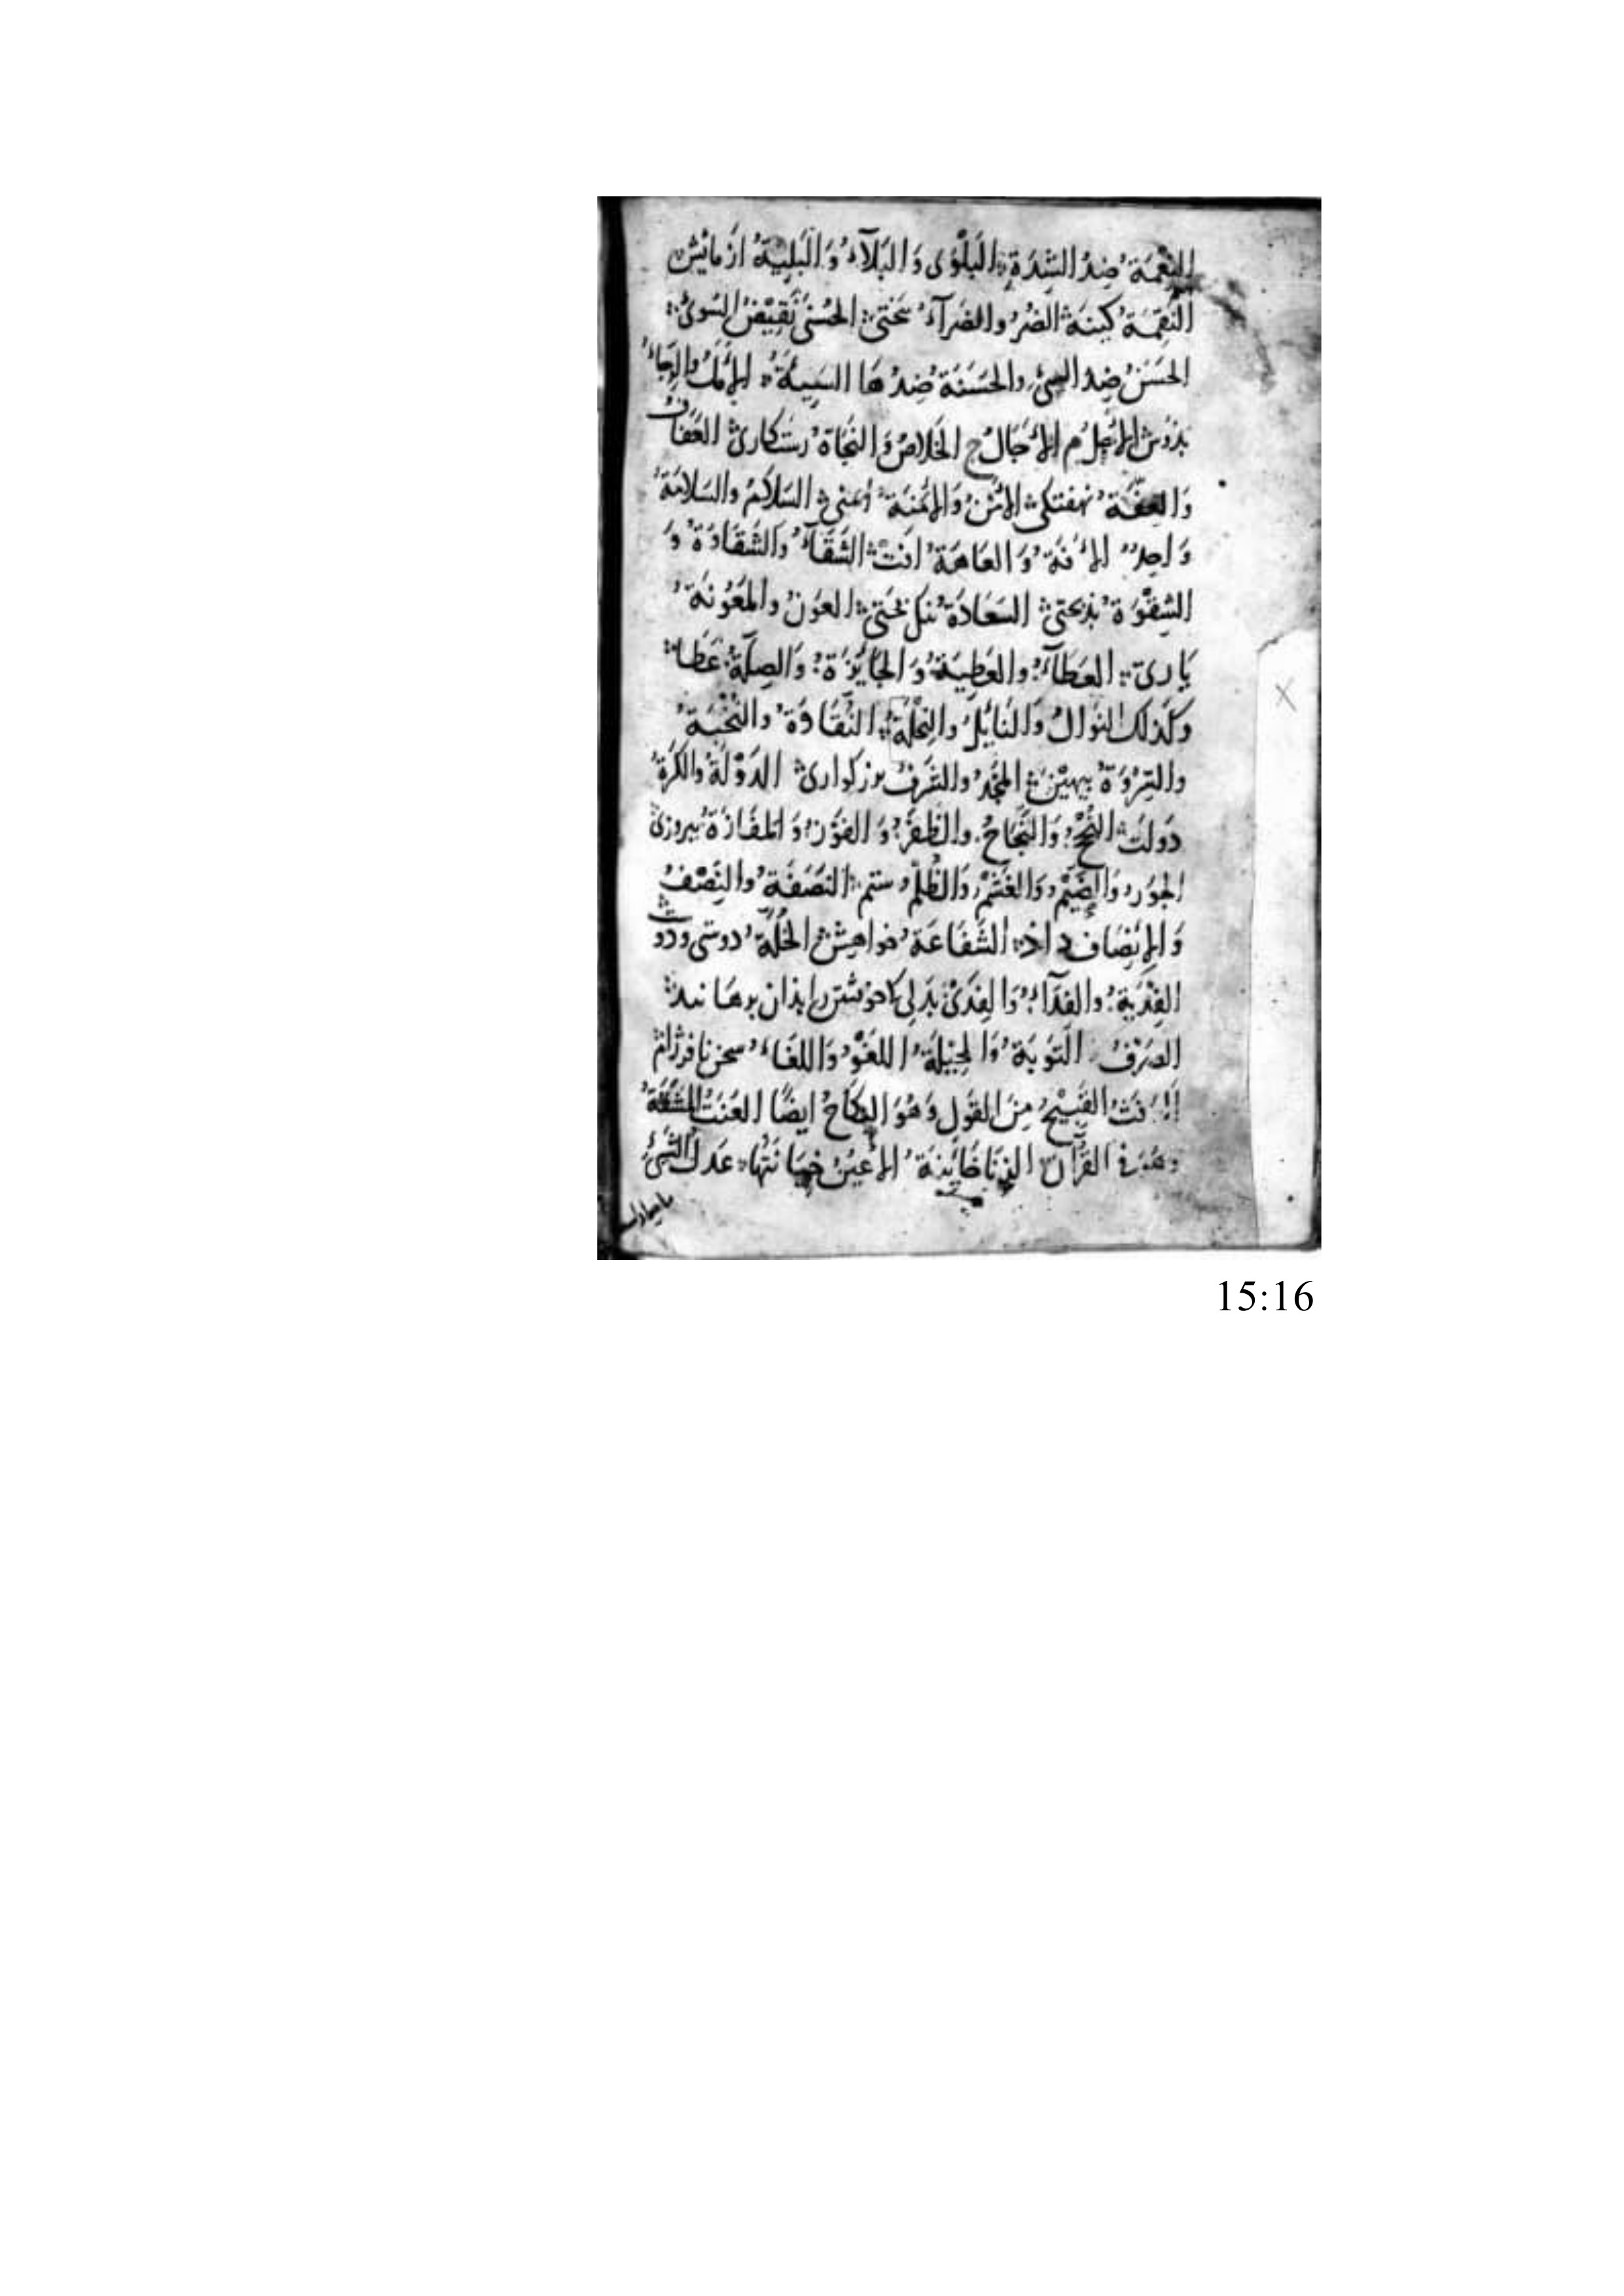 النِّعْمَةُ ضِدُّ الشِّدَّةِ البَلْوَى وَالبَلَآءُ وَالبَلِيَّةُ ازمايش
النَّقِمَةُ كينه الضُّرُّ والضَرَّآءُ سختى الحُسْنَى نَقِيْضُ السُّوىٰ
الحَسَنُ ضِدُّ السيئ والحَسَنَةُ ضِدُّهَا السَيِّئَةُ الأَمَلُ والرَّجَاءُ
الأَجَلُ م الأجَالُ ج الخَلاصُ وَالنَّجَاةُ رستكارى العَفَافُ
وَالعِفَّةُ نهفتكى الأَمْنُ وَالأَمَنَةُ أمنى السَلاَمُ والسَلامَةُ
وَاحِدٌ الأفَةُ وَالعَاهَةُ افت الشَقَآءُ والشَقَاوَةُ وَ
الشِقْوَةُ بذبختى السَعَادَةُ نيك بختى العَوْنُ والمَعُوْنَةُ
يارى العَطَآءُ والعَطِيَّةُ وَالجَايِزَةُ وَالصِلَةُ عَطا
وكَذلك النوَالُ وَالنَايِلُ والنِحْلَةُ النُقَاوَةُ والنُخْبَةُ
بهين المَجْدُ والشَرَفُ بزركوارى الدَوْلَةُ والكَرَّةُ
دولت النُجْحُ وَالنَجَاحُ والظَفَرُ وَالفَوْزُ وَالمَفَازَةُ بيروزى
الجَوْرُ وَالضَيْمُ وَالغَشْمُ وَالظُلْمُ ستم النَصَفَةُ والنِصْفُ
وَالإنصَاف داذ الشَفَاعَةُ خواهش الخُلَّةُ دوستى ودوست
الفِدْيَةُ والفِدَآءُ وَالفِدَىٰ بدلى كه خويشتن را بذان برهانند
الصَرْفُ التَوبَةُ وَالحِيْلَةُ اللَغْوُ وَاللغَاءُ سخن نافرژام
الرَفَثُ القَبِيْحُ مِنَ القَولِ وَهُوَ النِكَاحُ ايضًا العَنَتُ المَشَقَّةُ
وهُوَ فى القُرْآن الزِنَا خَائِنَةُ الأعيُن خِيَانَتُهَا عَدلُ الشَئِ
مايعادله
15:16